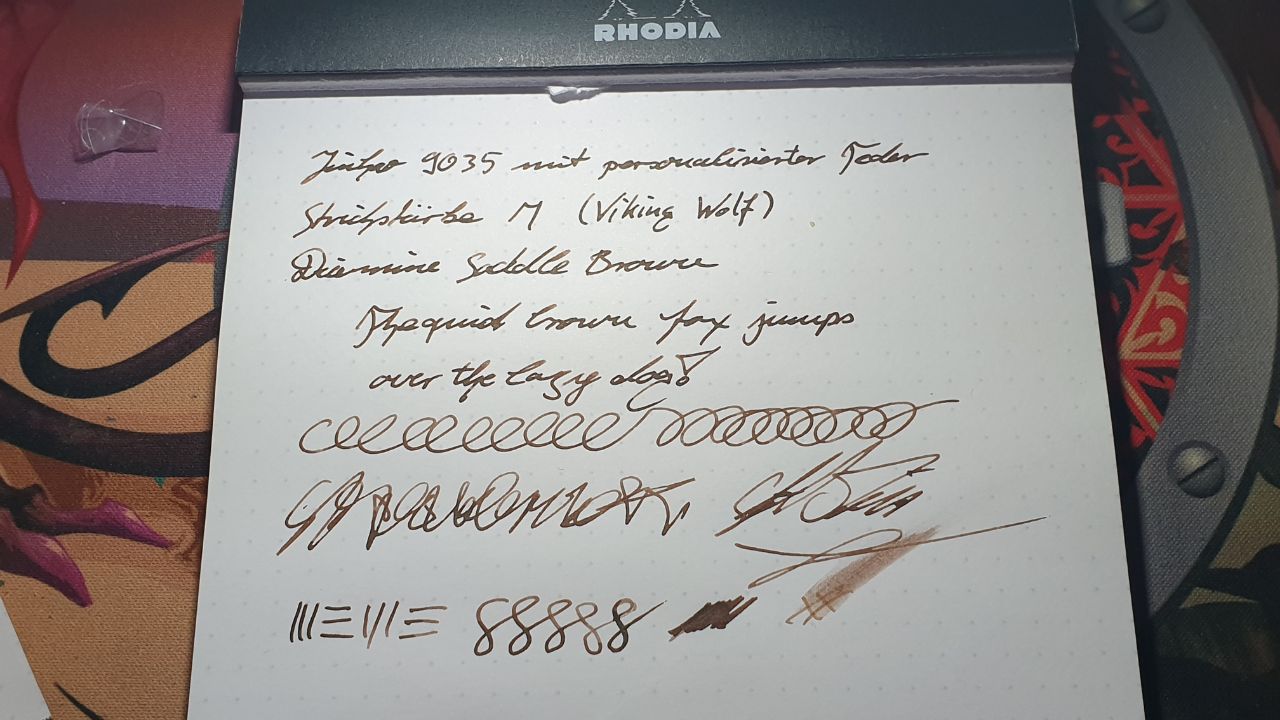 RHODIA
Jinhao 9035 mit personalisierter Feder
Strichstärke M (Viking Wolf)
Diamine Saddle Brown
The quick brown fox jumps
over the lazy dog!